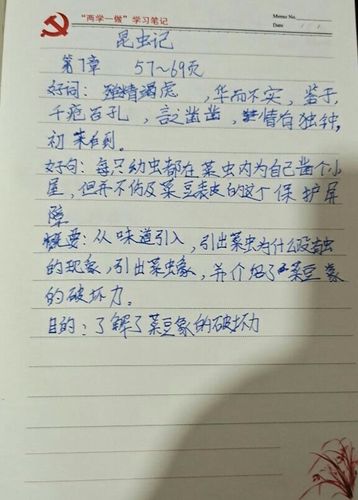 "两学一做"学习笔记
Memo No.
Date
昆虫记
第7章 57~69页
好词：殚精竭虑，华而不实，鉴于，
千疮百孔，言之凿凿，情有独钟，
初来乍到。
好句：每只幼虫都在菜虫内为自己凿个小
屋，但并不伤及菜豆表皮的这个保护屏
障
概要：从味道引入，引出菜虫为什么没有虫
的现象，引出菜虫象，并介绍了菜豆象
的破坏力。
目的：了解了菜豆象的破坏力